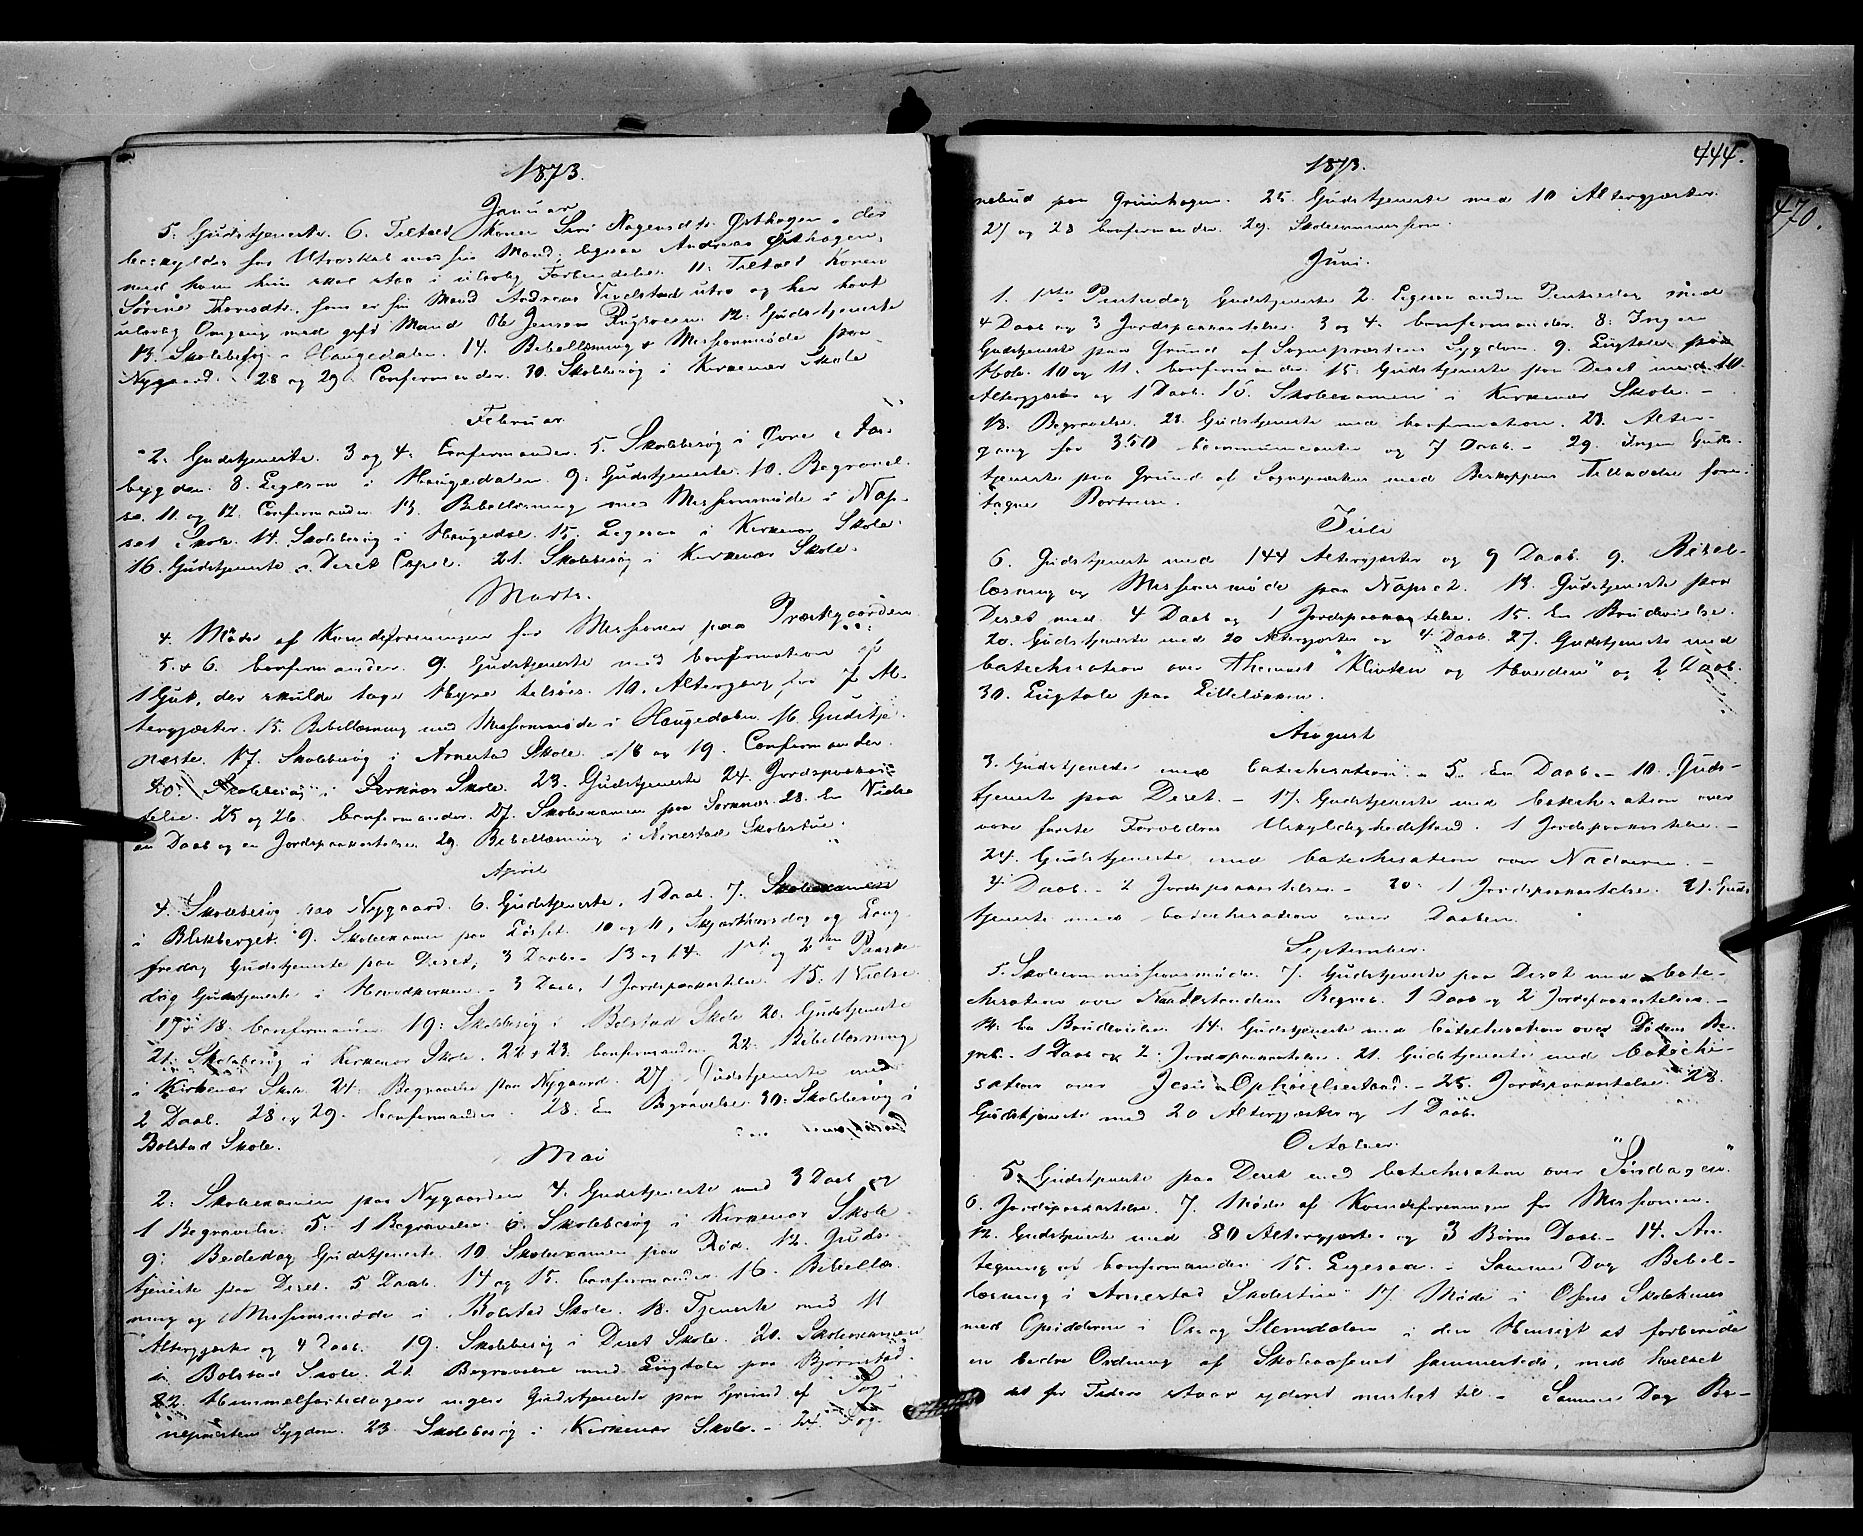 1873.
Januar
5. Gudstjeneste. 6. Tiltalt Konen Siri Nagensdtr. Østhagen, der
beskyldes for Utroskab mod sin Mand; ligesaa Andreas Østhagen,
med hvem hun skal staa i ulovlig Forbindelse. 11. Tiltalt Konen
Sørine Thorsdtr., som er sin Mand Andreas utro og har havt
ulovlig Omgang med gift Mand Ole Jensen 12. Gudstjeneste
13. Skolebesøg i Haugedalen. 14. Bibellæsning & Missionsmøde paa
Nygaard. 28 og 29. Confirmander. 30. Skolebesøg i Kirkenær Skole
Februar
2. Gudstjeneste. 3 og 4. Confirmander. 5. Skolebesøg i Øvre
bygden. 8. Ligesaa i Haugedalen. 9. Gudstjeneste. 10. Begravel-
se. 11 og 12. Confirmander 13. Bibellæsning med Missionsmøde i Nap-
set Skole. 14. Skolebesøg i Haugedal. 15. Ligesaa i Kirkenær Skole.
16. Gudstjeneste i Deset Capel. 21. Skolebesøg i Kirkenær Skole.
Marts.
4. Møde af Kvindeforeningen for Missionen paa Præstgaarden
5 & 6. Confirmander. 9. Gudstjeneste med Confirmation af
1 Gut, der skulde tage Hyre tilsøes. 10. Altergang for 7 Al-
tergjæster. 15. Bibellæsning med Missionsmøde i Haugedalen. 16. Gudstje
neste. 17. Skolebesøg i Arnestad Skole. 18 og 19. Confirmander.
20. Skolebesøg i Sorknæs Skole. 23. Gudstjeneste 24. Jordspaakas-
telse. 25 og 26. Confirmander. 27. Skolexamen paa Sorknæs. 28. En Vielse
en Daab og en Jordspaakastelse 29. Bibellæsning i Arnestad Skolestue.
April
4. Skolebesøg paa Nygaard. 6. Gudstjeneste, 1 Daab. 7. Skolexamen
i Blikberget. 9. Skolexamen paa Løsset. 10 og 11, Skjærthorsdag og Lang-
fredag Gudstjeneste paa Deset, 3 Daab. 13 og 14. 1ste og 2den Paaske
dag Gudstjeneste i Hovedkirken. 3 Daab, 1 Jordspaakastelse. 15. 1 Vielse
17 & 18. Confirmander 19. Skolebesøg i Bolstad Skole 20. Gudstjeneste
21. Skolebesøg i Kirkenær Skole. 22 & 23. Confirmander. 22. Bibellæsning
i Kirkenær Skole 24. Begravelse paa Nygaard. 27. Gudstjeneste med
2 Daab. 28 og 29. Confirmander. 28. En Begravelse. 30. Skolebesøg i
Bolstad Skole.
Mai
2. Skolexamen paa Nygaarden 4. Gudstjeneste med 3 Daab og
1 Begravelse. 5. 1 Begravelse. 6. Skolebesøg i Kirkenær Skole
9. Bededag Gudstjeneste. 10 Skolexamen paa Rød. 12. Guds-
tjeneste paa Deset. 5 Daab. 14 og 15. Confirmander. 16. Bibellæs-
ning og Missionsmøde i Bolstad Skole. 18. Tjeneste med 11
Altergjæster og 4 Daab. 19. Skolebesøg i Deset Skole. 20. Skolexamen
i Bolstad Skole. 21. Begravelse med Liigtale paa Bjørnstad.
22. Himmelfartsdagen ingen Gudstjeneste paa Grund af Sog-
nepræstens Sygdom. 23. Skolebesøg i Kirkenær Skole. 24. Sog-
1873.
444.
470.
nebud paa Grünhagen. 25. Gudstjeneste med 10 Altergjæster.
27 og 28 Confirmander. 29. Skolecommission.
Juni.
1. 1ste Pintsedag Gudstjeneste 2. Ligesaa anden Pintsedag med
4 Daab og 3 Jordspaakastelser. 3 og 4. Confirmander. 8. Ingen
Gudstjeneste paa Grund af Sognepræstens Sygdom. 9. Liigtale paa
Hole. 10 og 11. Confirmander. 15. Gudstjeneste paa Deset med 10
Altergjæster og 1 Daab. 16. Skolexamen i Kirkenær Skole.
18. Begravelse. 22. Gudstjeneste med Confirmation. 23. Alter-
gang for 350 Communicanter og 7 Daab. 29. Ingen Guds-
tjeneste paa Grund af Sognepræstens med Biskoppens Tilladelse fore-
tagne Bortreise.
Juli
6. Gudstjeneste med 144 Altergjæster og 9 Daab. 9. Bibel-
læsning og Missionsmøde paa Napset. 13. Gudstjeneste paa
Deset med 4 Daab og 1 Jordspaakastelse. 15. En Brudevielse.
20. Gudstjeneste med 20 Altergjæster og 4 Daab. 27. Gudstjeneste med
Catechisation over Themaet "Klinten og Hveden" og 2 Daab.
30. Liigtale paa Lilleløkken.
August
3. Gudstjeneste med Catechisation. 5. En Daab. 10. Guds-
tjeneste paa Deset. 17. Gudstjeneste med Catechisation over
vore første Forældres Uskyldighedsstand. 1 Jordspaakastelse.
24. Gudstjeneste med Catechisation over Nadveren.
4 Daab. 2 Jordspaakastelser. 1 Jordspaakastelse. 31. Guds
tjeneste med Catechisation over Daaben.
September.
5. Skolecommissionsmøde. 7. Gudstjeneste paa Deset med Cate-
chisation over Naadestandens Begreb. 1 Daab og 2 Jordspaakastelser.
12. En Brudevielse. 14. Gudstjeneste med Catechisation over Dødens Be-
greb. 1 Daab og 2 Jordspaakastelser. 21. Gudstjeneste med Catechi-
sation over Jesu Ophøielsesstand. 25. Jordspaakastelse. 28.
Gudstjeneste med 20 Altergjæster og 1 Daab.
October.
5. Gudstjeneste paa Deset med Catechisation over "Søndagen".
6. Jordspaakastelse. 7. Møde af Kvindeforeningen for Missionen.
12. Gudstjeneste med 80 Altergjæster og 3 Børns Daab. 14. An-
tegning af Confirmander. 15. Ligesaa. Samme Dag Bibel-
læsning i Arnestad Skolestue. 17. Møde i Osens Skolehuus
med Opsidderne i Os og Slemdalen i den Hensigt at forberede
en bedre Ordning af Skolevæsenet sammesteds, med hvilket
det for Tiden staar yderst usselt til. Samme Dag Be-